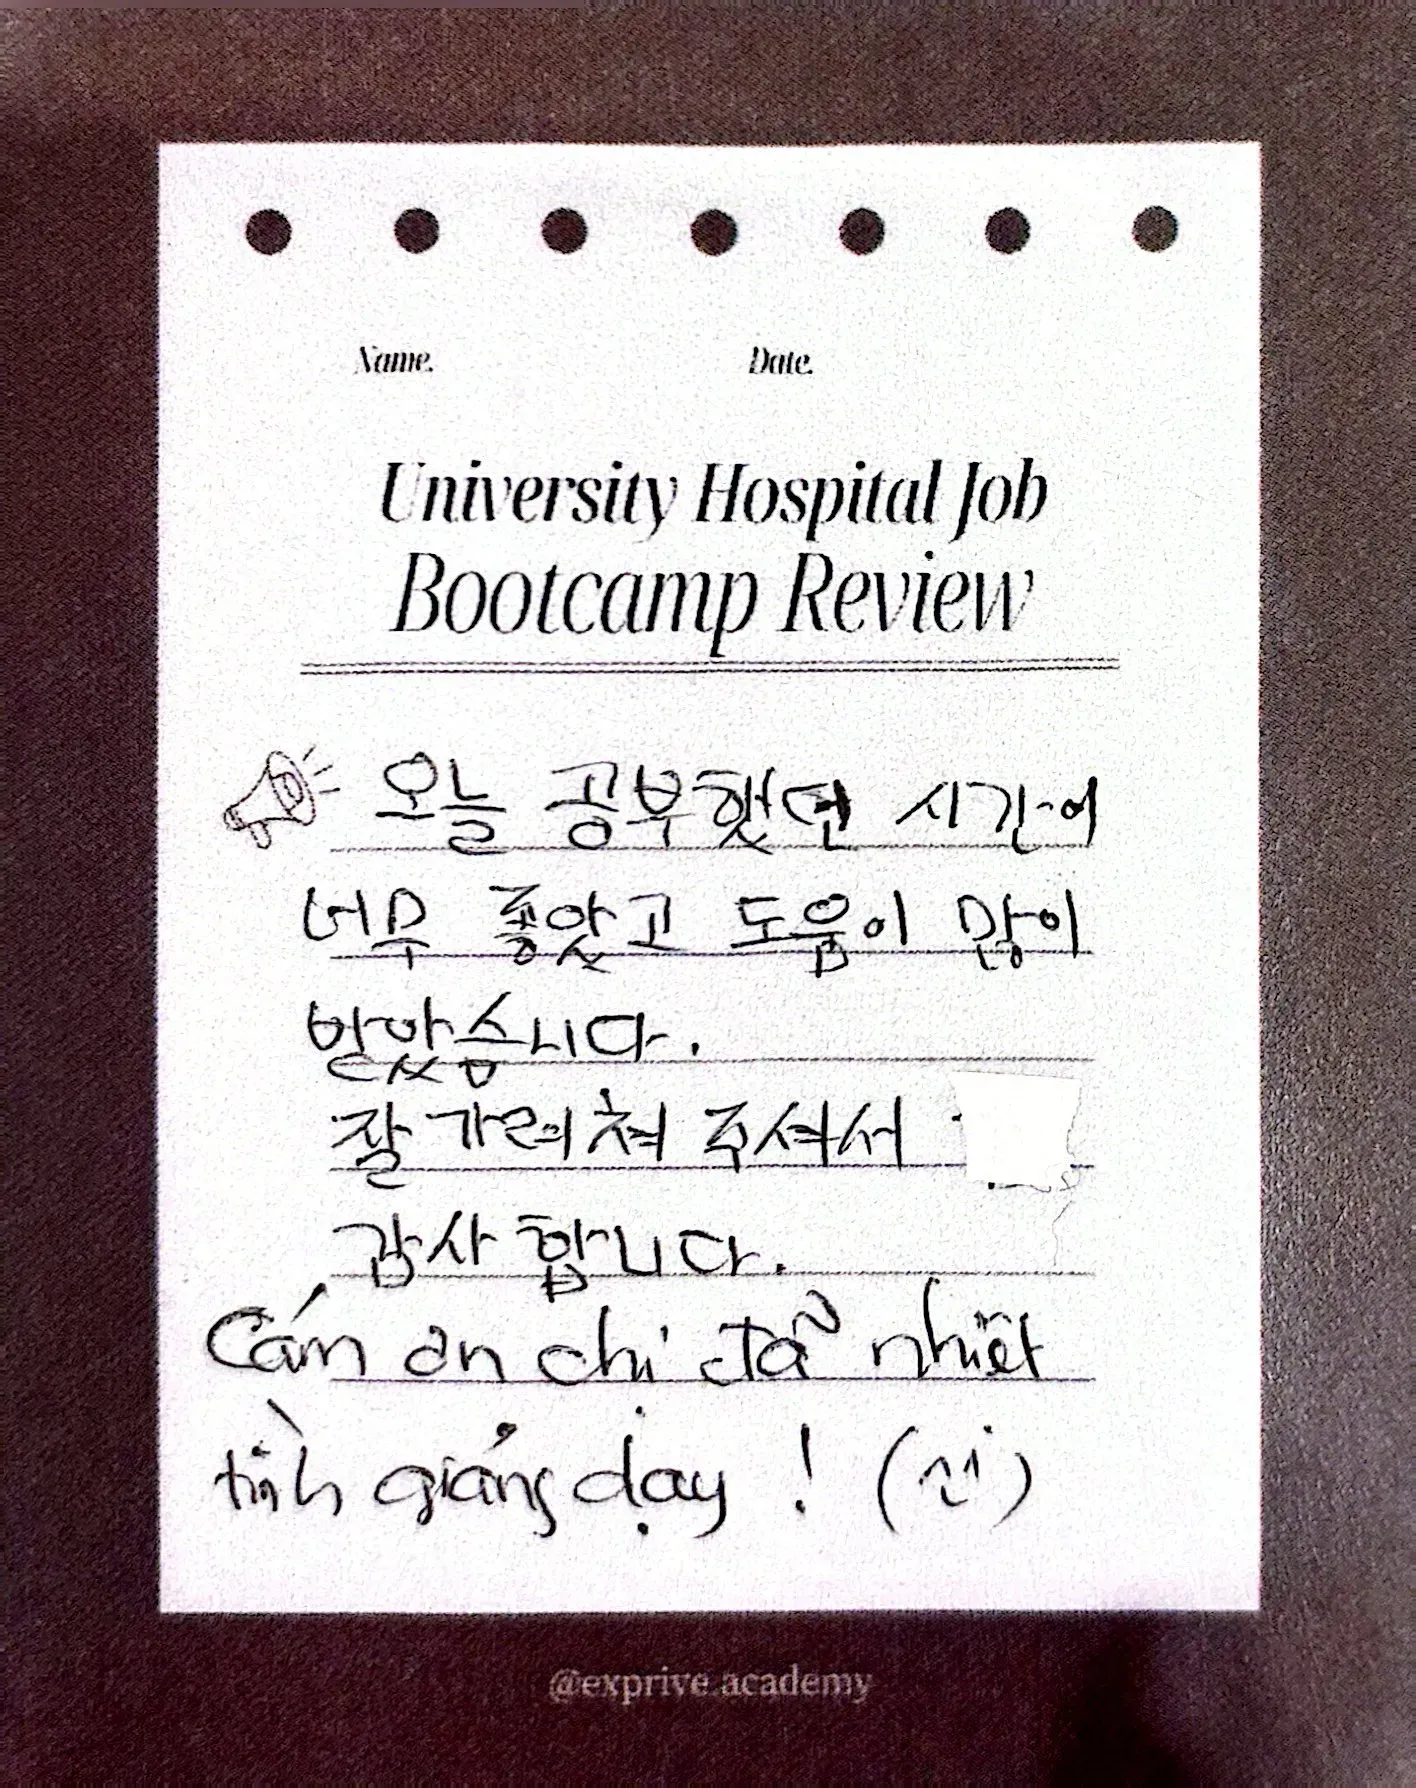 Name. Date.
University Hospital Job
Bootcamp Review
오늘 공부했던 시간이
너무 좋았고 도움이 많이
받았습니다.
잘 가르쳐 주셔서
감사합니다.
Cám ơn chị đã nhiệt
tình giảng dạy ! (신)
@exprive.academy